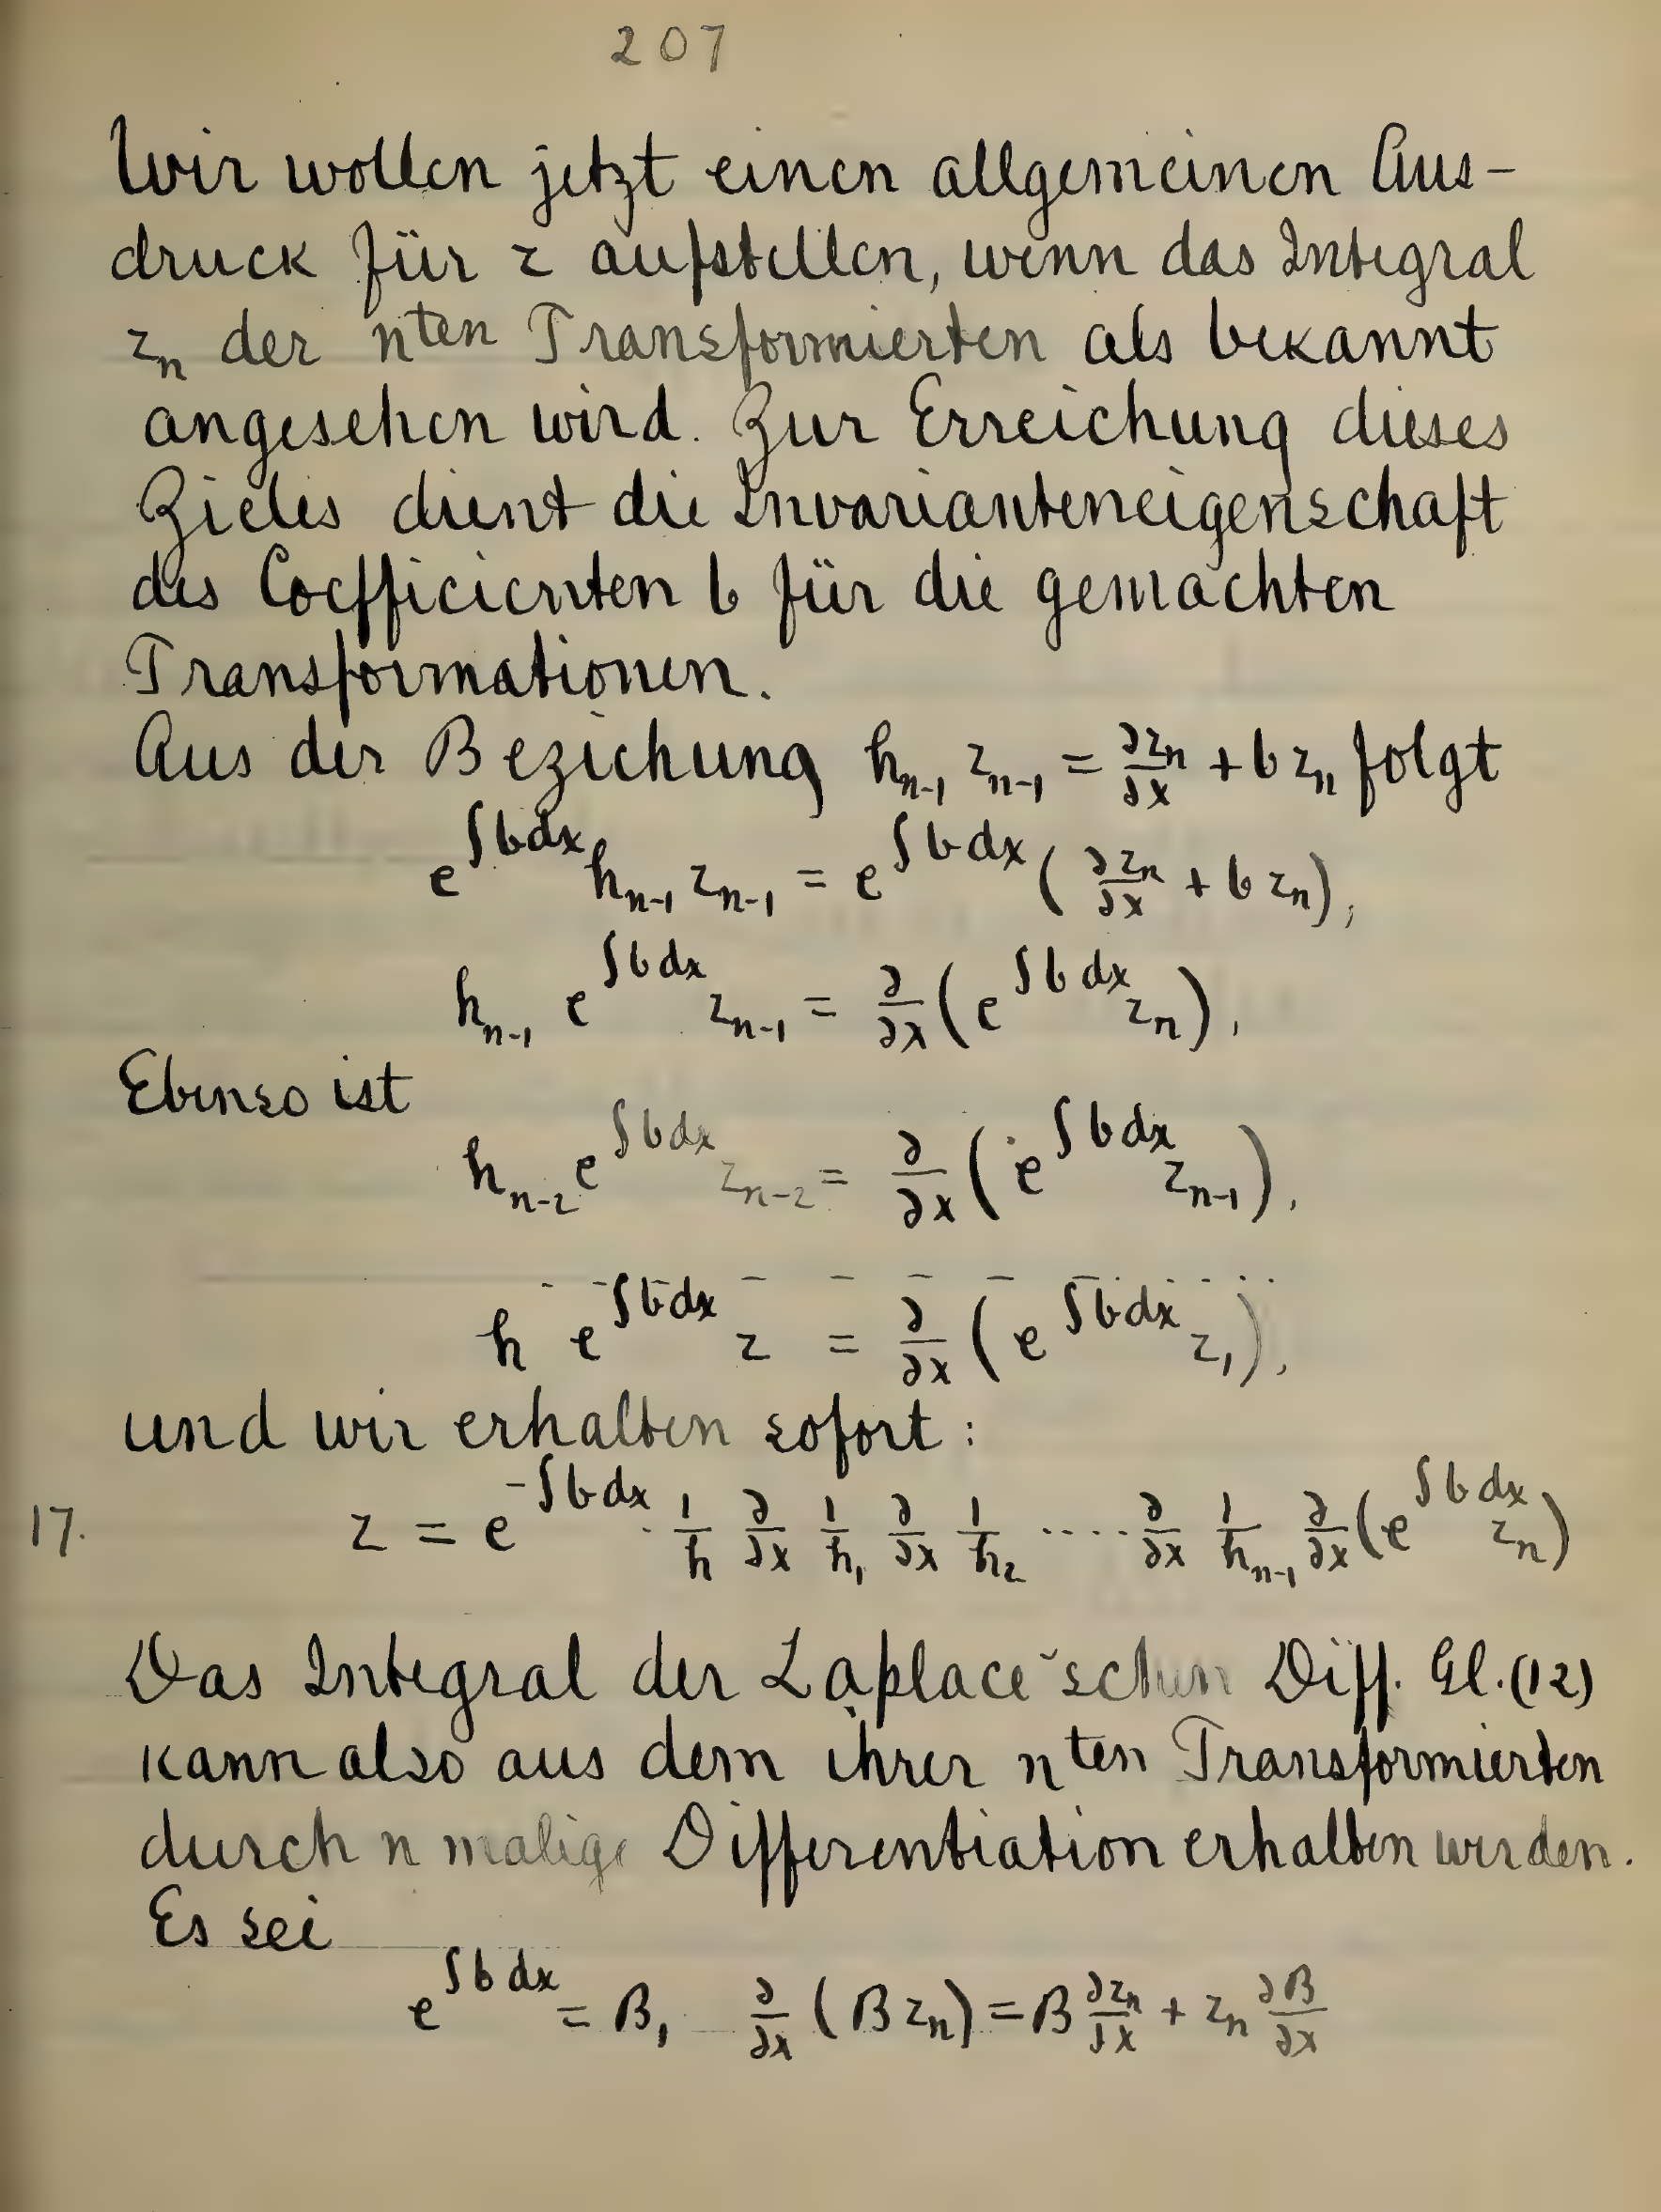 207
Wir wollen jetzt einen allgemeinen Aus-
druck für z aufstellen, wenn das Integral
z_n der nten Transformierten als bekannt
angesehen wird. Zur Erreichung dieses
Zieles dient die Invarianteneigenschaft
des Coefficienten b für die gemachten
Transformationen.
Aus der Beziehung h_{n-1} z_{n-1} = ∂z_n/∂x + b z_n folgt
e^{∫b dx} h_{n-1} z_{n-1} = e^{∫b dx} (∂z_n/∂x + b z_n),
h_{n-1} e^{∫b dx} z_{n-1} = ∂/∂x (e^{∫b dx} z_n),
Ebenso ist
h_{n-2} e^{∫b dx} z_{n-2} = ∂/∂x (e^{∫b dx} z_{n-1}),
- - - - - - - - . . . .
h e^{∫b dx} z = ∂/∂x (e^{∫b dx} z_1),
und wir erhalten sofort:
17. z = e^{-∫b dx} · 1/h ∂/∂x 1/h_1 ∂/∂x 1/h_2 ····· ∂/∂x 1/h_{n-1} ∂/∂x (e^{∫b dx} z_n)
Das Integral der Laplace'schen Diff. Gl. (12)
kann also aus dem ihrer nten Transformierten
durch n malige Differentiation erhalten werden.
Es sei
e^{∫b dx} = B, ∂/∂x (B z_n) = B ∂z_n/∂x + z_n ∂B/∂x